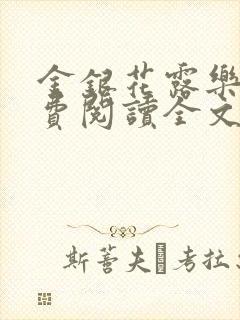 金銀花露樂
費閱讀全文
斯蒼夫 考拉